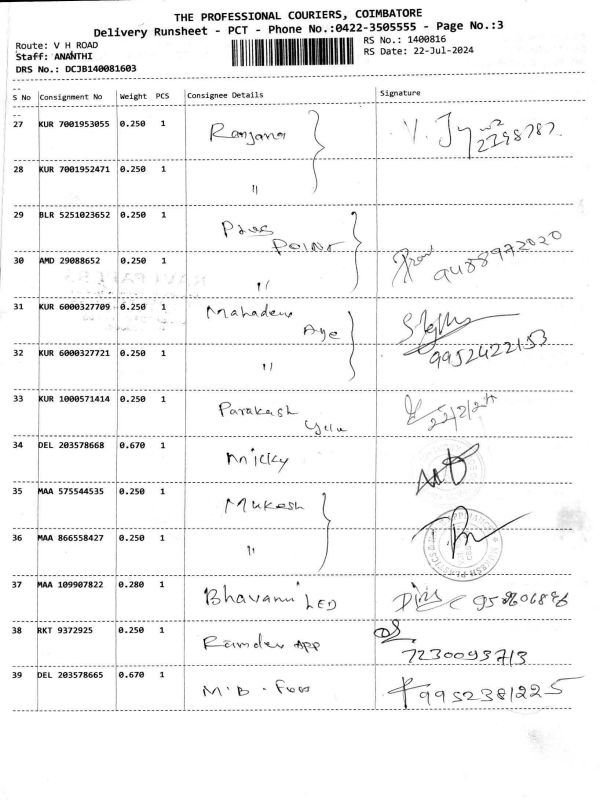 THE PROFESSIONAL COURIERS, COIMBATORE
Delivery Runsheet - PCT - Phone No.:0422-3505555 - Page No.:3
Route: V H ROAD
RS No.: 1400816
Staff: ANANTHI
RS Date: 22-Jul-2024
DRS No.: DCJB140081603
--
S No Consignment No Weight PCS Consignee Details Signature
--
27 KUR 7001953055 0.250 1 Ranjana
28 KUR 7001952471 0.250 1 "
29 BLR 5251023652 0.250 1 Plus Point
30 AMD 29088652 0.250 1 " 9488972020
31 KUR 6000327709 0.250 1 Mahadev Age
32 KUR 6000327721 0.250 1 " 9952422153
33 KUR 1000571414 0.250 1 Parakash
34 DEL 203578668 0.670 1 Micky
35 MAA 575544535 0.250 1 Mukesh
36 MAA 866558427 0.250 1 "
37 MAA 109907822 0.280 1 Bhavani LED
38 RKT 9372925 0.250 1 Ramdev APP 7230093713
39 DEL 203578665 0.670 1 M.B. Foos 9952381225